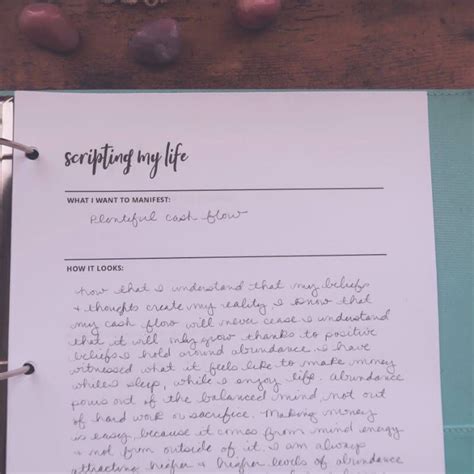 scripting my life
WHAT I WANT TO MANIFEST:
Plentiful cash flow
HOW IT LOOKS:
now that I understand that my beliefs
& thoughts create my reality I know that
my cash flow will never cease I understand
that it will only grow thanks to positive
beliefs I hold around abundance. I have
witnessed what it feels like to make money
while I sleep, while I enjoy life. Abundance
pours out of the balanced mind, not out
of hard work or sacrifice. Making money
is easy, because it comes from mind energy
& not from outside of it. I am always
attracting higher & higher levels of abundance